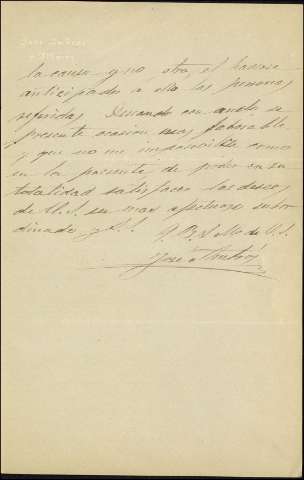 la causa y no otra, el haverse
anticipado a ello las personas
referidas. Deseando con anhelo se
presente ocasion mas faborable
y que no me imposibilite como
en la presente de poder en su
totalidad satisfacer los deseos
de U.S. su mas afectuoso subor
dinado,
Q. B. S. M. de U.S.
José